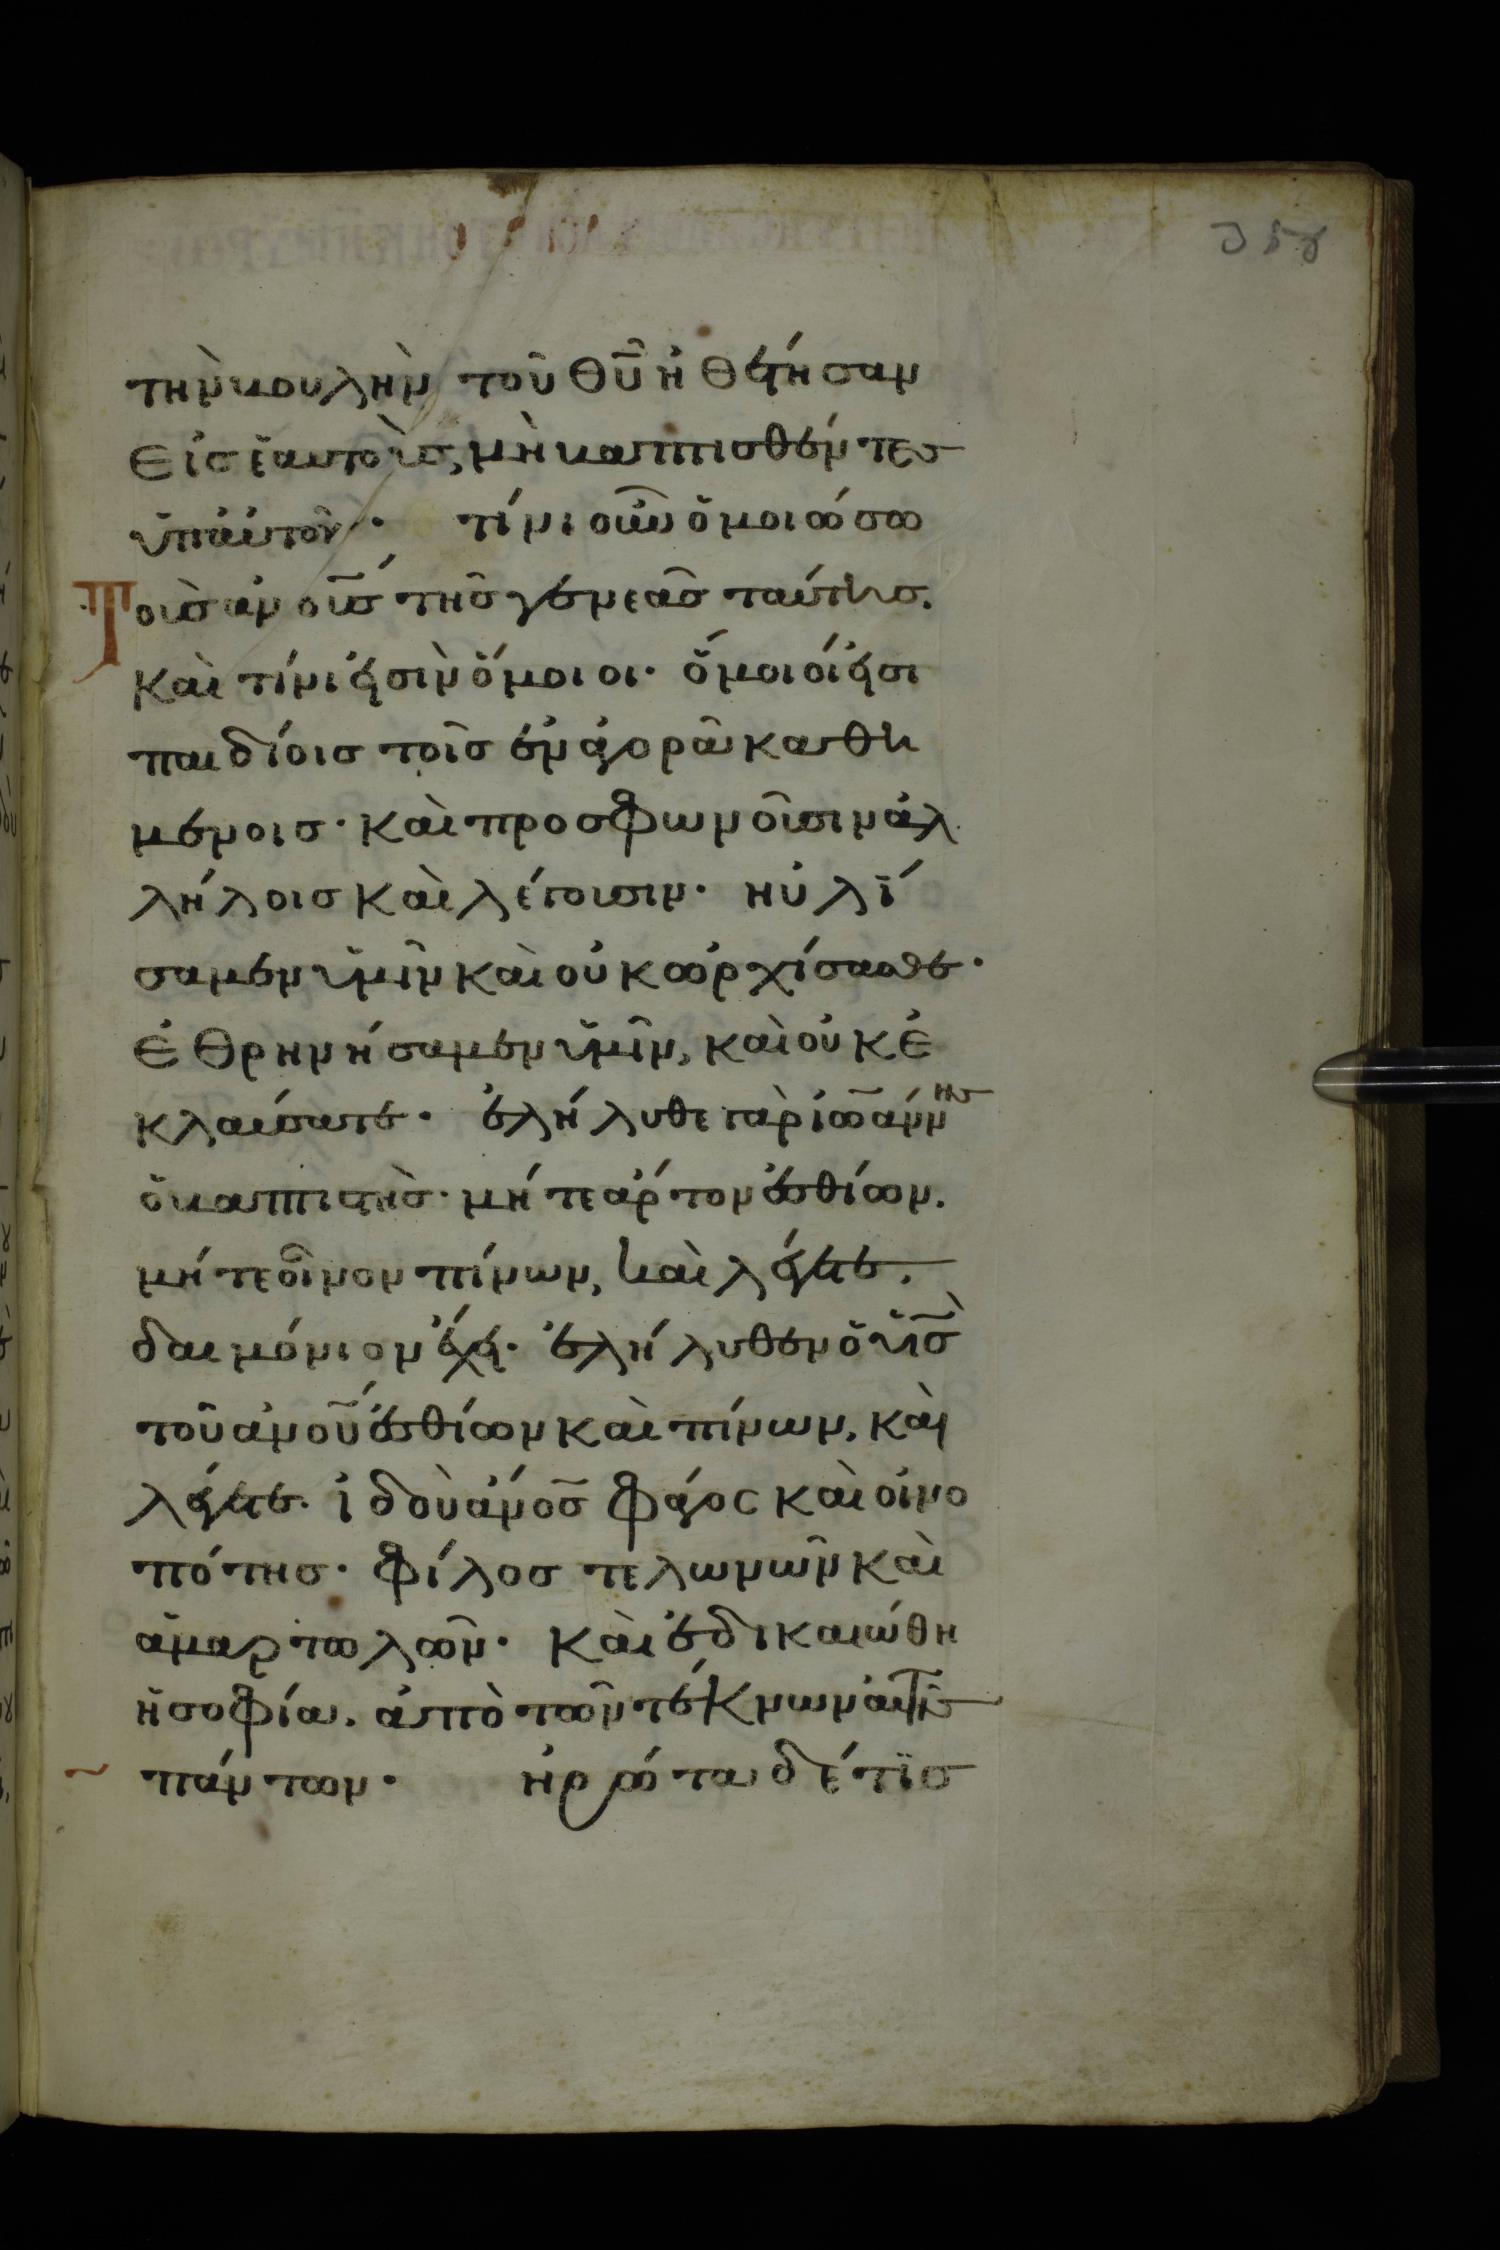 τὴν βουλὴν τοῦ θῦ ἠθέτησαν
εἰς ἑαυτοὺς, μὴ βαπτισθέντες
ὑπ αὐτοῦ· τίνι οὖν ὁμοιώσω
τοὺς ἀνους τῆς γενεᾶς ταύτης.
καὶ τίνι εἰσὶν ὅμοιοι· ὅμοιοί εἰσι
παιδίοις τοῖς ἐν ἀγορᾶ καθη
μένοις· καὶ προσφωνοῦσιν ἀλ
λήλοις καὶ λέγουσιν· ηὐλί
σαμεν ὑμῖν καὶ οὐκ ὠρχίσασθε·
ἐθρηνήσαμεν ὑμῖν, καὶ οὐκ ἐ
κλαύσατε· ἐλήλυθε γὰρ ἰωάννης
ὁ βαπτιστὴς· μήτε ἄρτον ἐσθίων.
μήτε οἶνον πίνων, καὶ λέγετε.
δαιμόνιον ἔχει· ἐλήλυθεν ὁ ὑις
τοῦ ἀνου ἐσθίων καὶ πίνων, καὶ
λέγετε. ἰδοὺ ἄνος φάγος καὶ οἰνο
πότης· φίλος τελωνῶν καὶ
ἁμαρτωλῶν· καὶ ἐδικαιώθη
ἡ σοφία. ἀπὸ τῶν τέκνων αὐτῆς
πάντων· ἠρώτα δέ τϊς